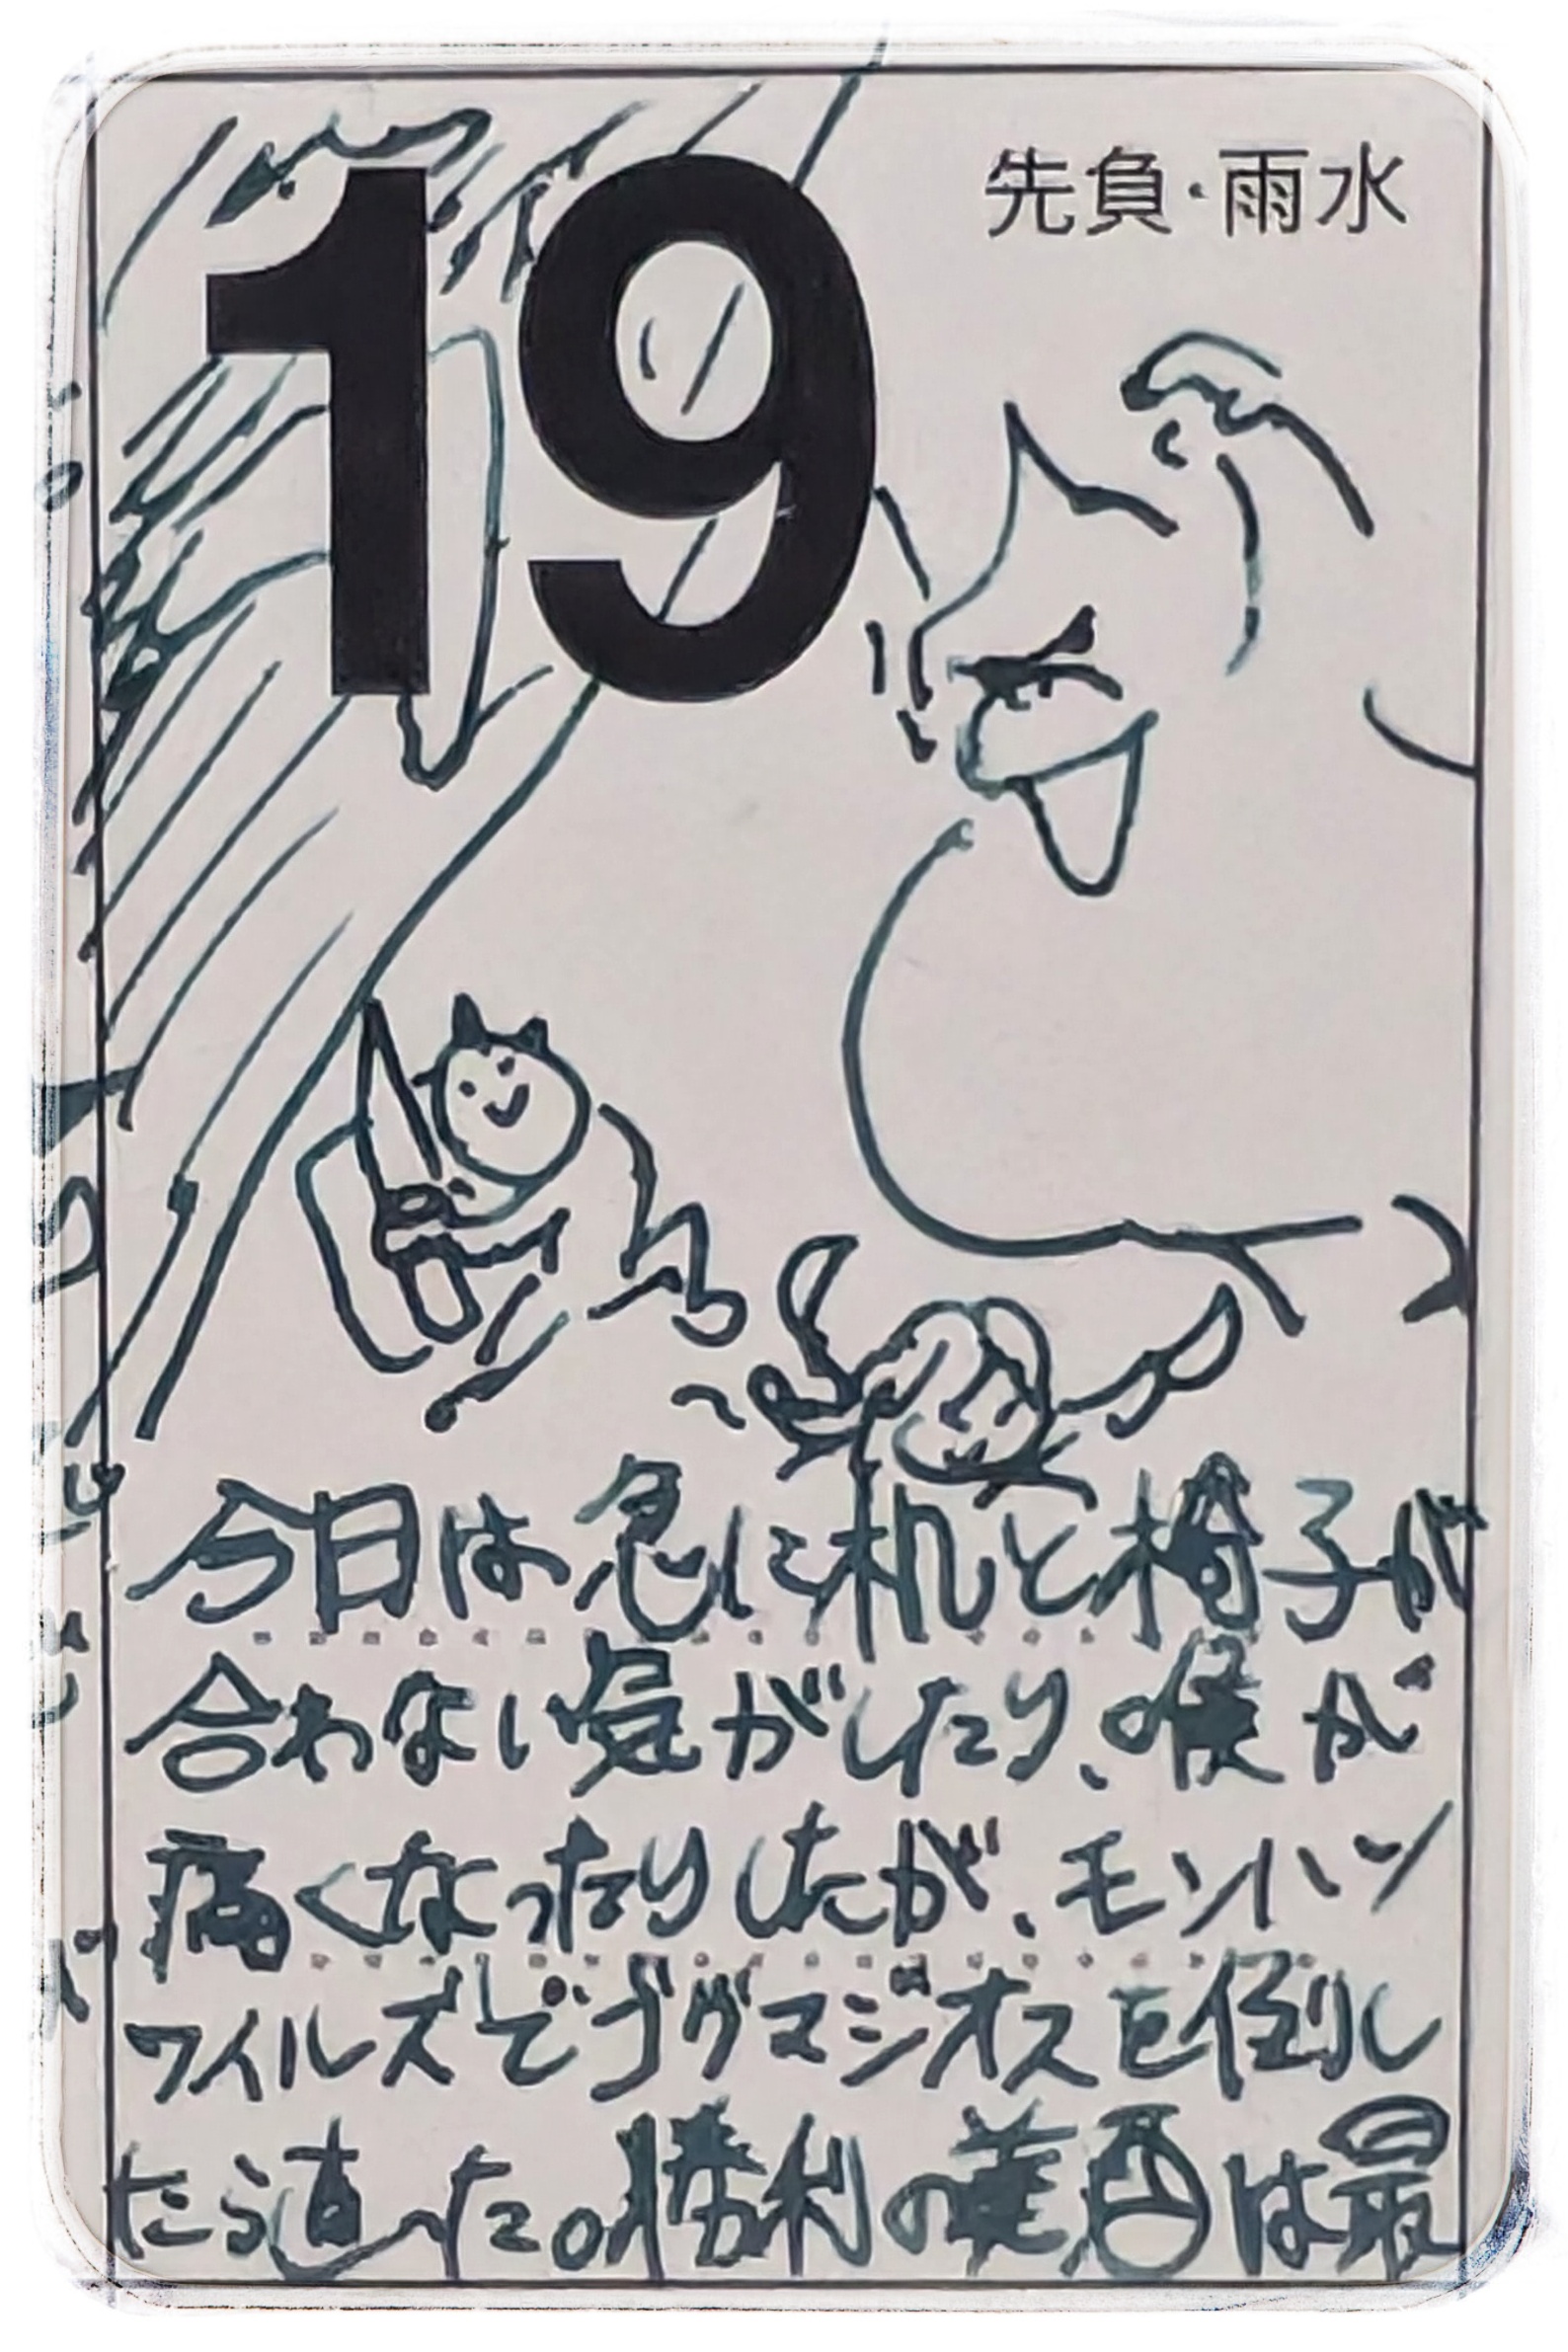 19
先負・雨水
今日は急に机と椅子が
合わない気がしたり、喉が
痛くなったりしたが、モンハン
ワイルズでゴグマジオスを倒し
たら直った。勝利の美酒は最